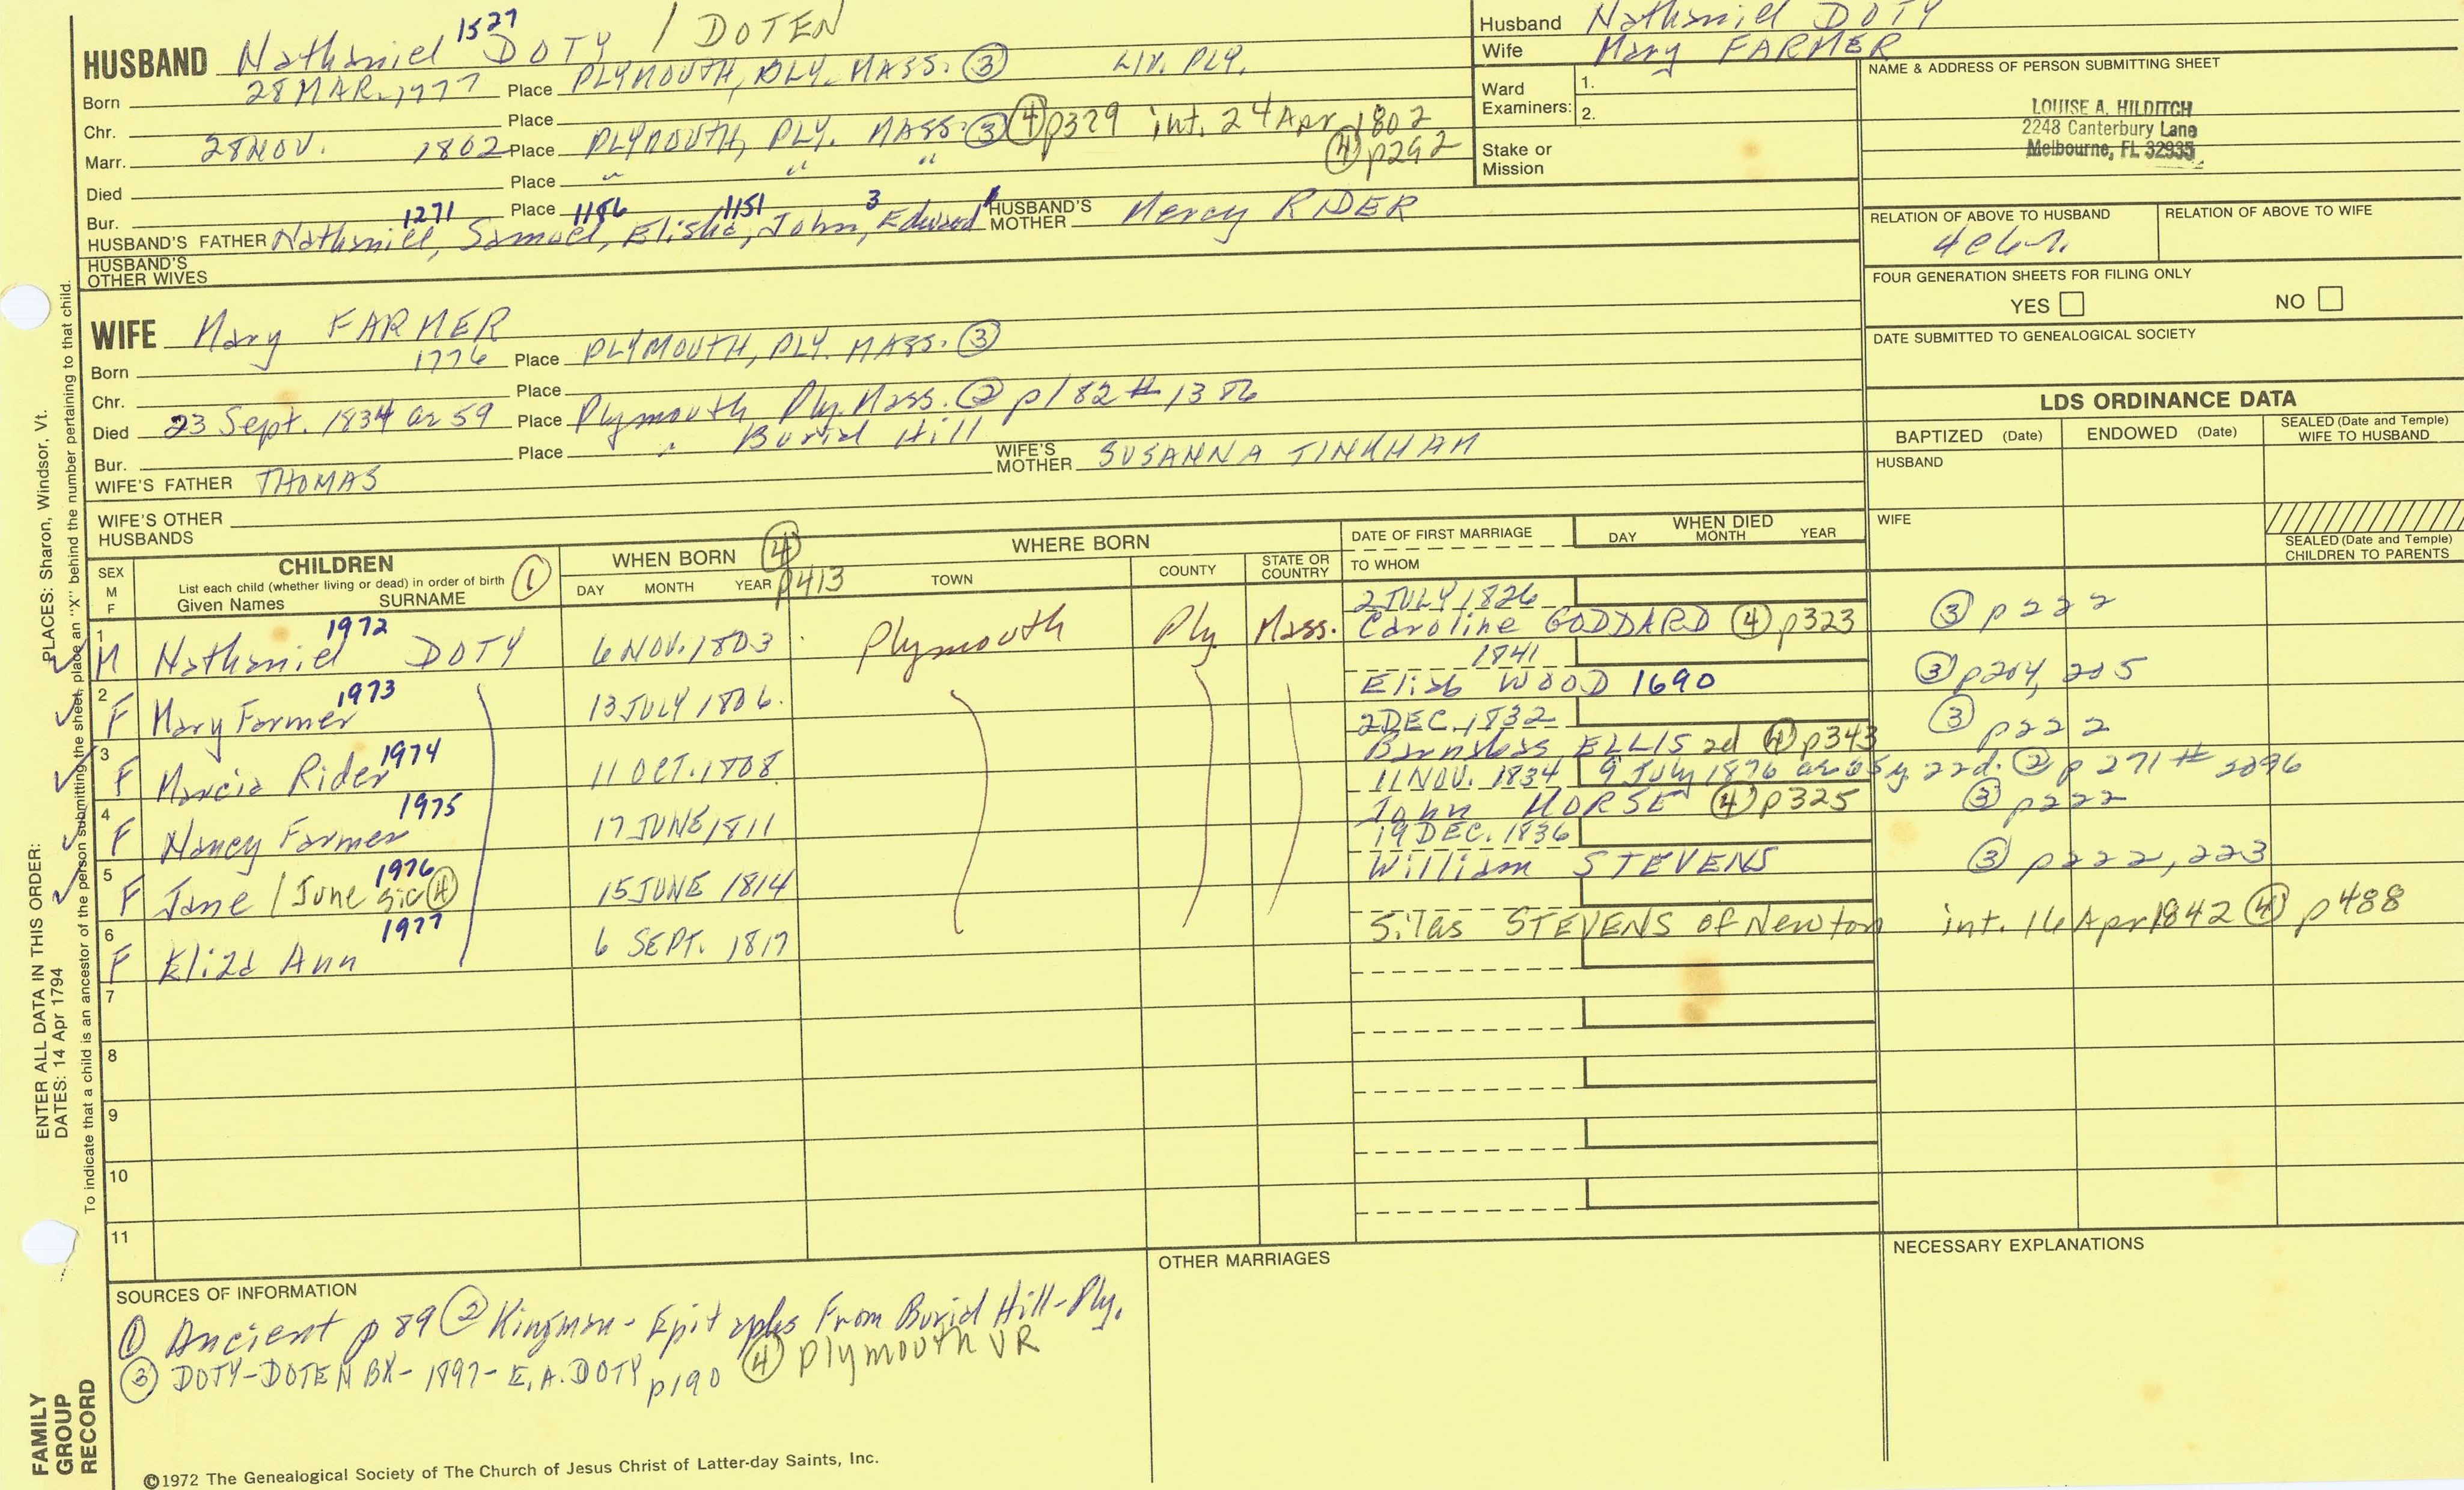 1527
HUSBAND Nathaniel DOTY / DOTEN
Born 28 MAR. 1777 Place PLYMOUTH, PLY. MASS. ③ LIV. PLY.
Chr. Place
Marr. 28 NOV. 1802 Place PLYMOUTH, PLY. MASS. ③ ④ p329 int. 24 Apr 1802
④ p292
Died Place " " "
Bur. Place
1271 1156 1151 3 1
HUSBAND'S FATHER Nathaniel, Samuel, Elisha, John, Edward HUSBAND'S MOTHER Mercy RIDER
HUSBAND'S OTHER WIVES
Husband Nathaniel DOTY
Wife Mary FARMER
Ward Examiners: 1.
2.
Stake or Mission
NAME & ADDRESS OF PERSON SUBMITTING SHEET
LOUISE A. HILDITCH
2248 Canterbury Lane
Melbourne, FL 32935
RELATION OF ABOVE TO HUSBAND RELATION OF ABOVE TO WIFE
FOUR GENERATION SHEETS FOR FILING ONLY
YES NO
DATE SUBMITTED TO GENEALOGICAL SOCIETY
WIFE Mary FARMER
Born 1776 Place PLYMOUTH, PLY. MASS. ③
Chr. Place
Died 23 Sept. 1834 ae 59 Place Plymouth Ply. Mass. ② p182 #1386
Bur. Place " Burial Hill
WIFE'S FATHER THOMAS WIFE'S MOTHER SUSANNA TINKHAM
WIFE'S OTHER HUSBANDS
LDS ORDINANCE DATA
BAPTIZED (Date) ENDOWED (Date) SEALED (Date and Temple) WIFE TO HUSBAND
HUSBAND
WIFE
SEALED (Date and Temple) CHILDREN TO PARENTS
SEX M F
CHILDREN ①
List each child (whether living or dead) in order of birth
Given Names SURNAME
WHEN BORN ④ p413
DAY MONTH YEAR
WHERE BORN
TOWN COUNTY STATE OR COUNTRY
DATE OF FIRST MARRIAGE
TO WHOM
WHEN DIED
DAY MONTH YEAR
1 M Nathaniel 1972 DOTY 6 NOV. 1803 Plymouth Ply. Mass. 2 JULY 1826
Caroline GODDARD ④ p323 ③ p222
2 F Mary Farmer 1973 13 JULY 1806. 1841
Elisb WOOD 1690 ③ p204, 205
3 F Marcia Rider 1974 11 OCT. 1808. 2 DEC. 1832
Barnabas ELLIS 2d ④ p343 ③ p222
4 F Nancy Farmer 1975 17 JUNE 1811 11 NOV. 1834 9 July 1876 ae 65 y 22d. ② p271 # 2296
John MORSE ④ p325 ③ p222
5 F Jane / June sic ④ 1976 15 JUNE 1814 19 DEC. 1836
William STEVENS ③ p222, 223
6 F Eliza Ann 1977 6 SEPT. 1817
Silas STEVENS of Newton int. 16 Apr 1842 ④ p488
7
8
9
10
11
SOURCES OF INFORMATION
① Ancient p89 ② Kingman - Epitaphs From Burial Hill - Ply.
③ DOTY-DOTEN BK - 1897 - E. A. DOTY p190 ④ Plymouth VR
OTHER MARRIAGES
NECESSARY EXPLANATIONS
©1972 The Genealogical Society of The Church of Jesus Christ of Latter-day Saints, Inc.
FAMILY GROUP RECORD
ENTER ALL DATA IN THIS ORDER: PLACES: Sharon, Windsor, Vt.
DATES: 14 Apr 1794
To indicate that a child is an ancestor of the person submitting the sheet, place an "X" behind the number pertaining to that child.